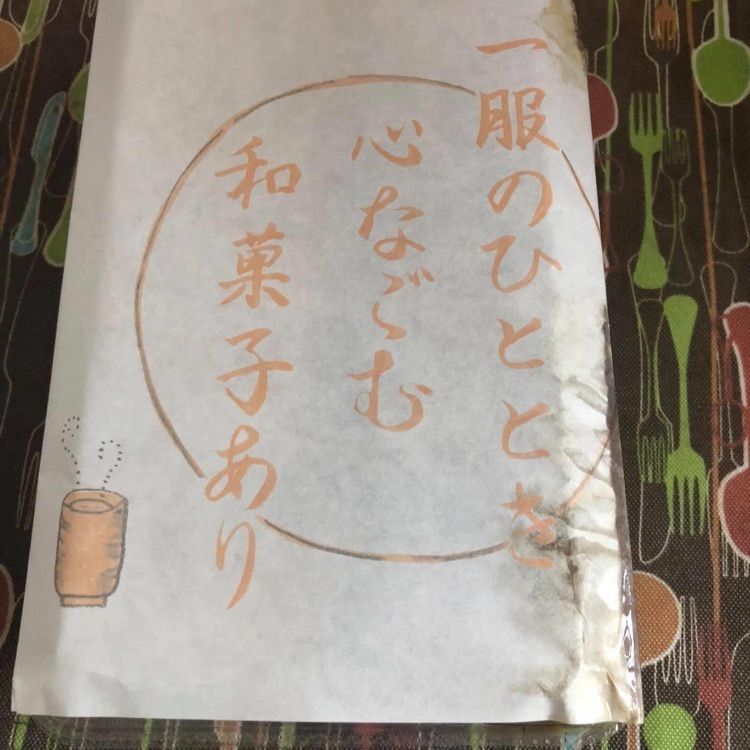 一服のひととき
心なごむ
和菓子あり